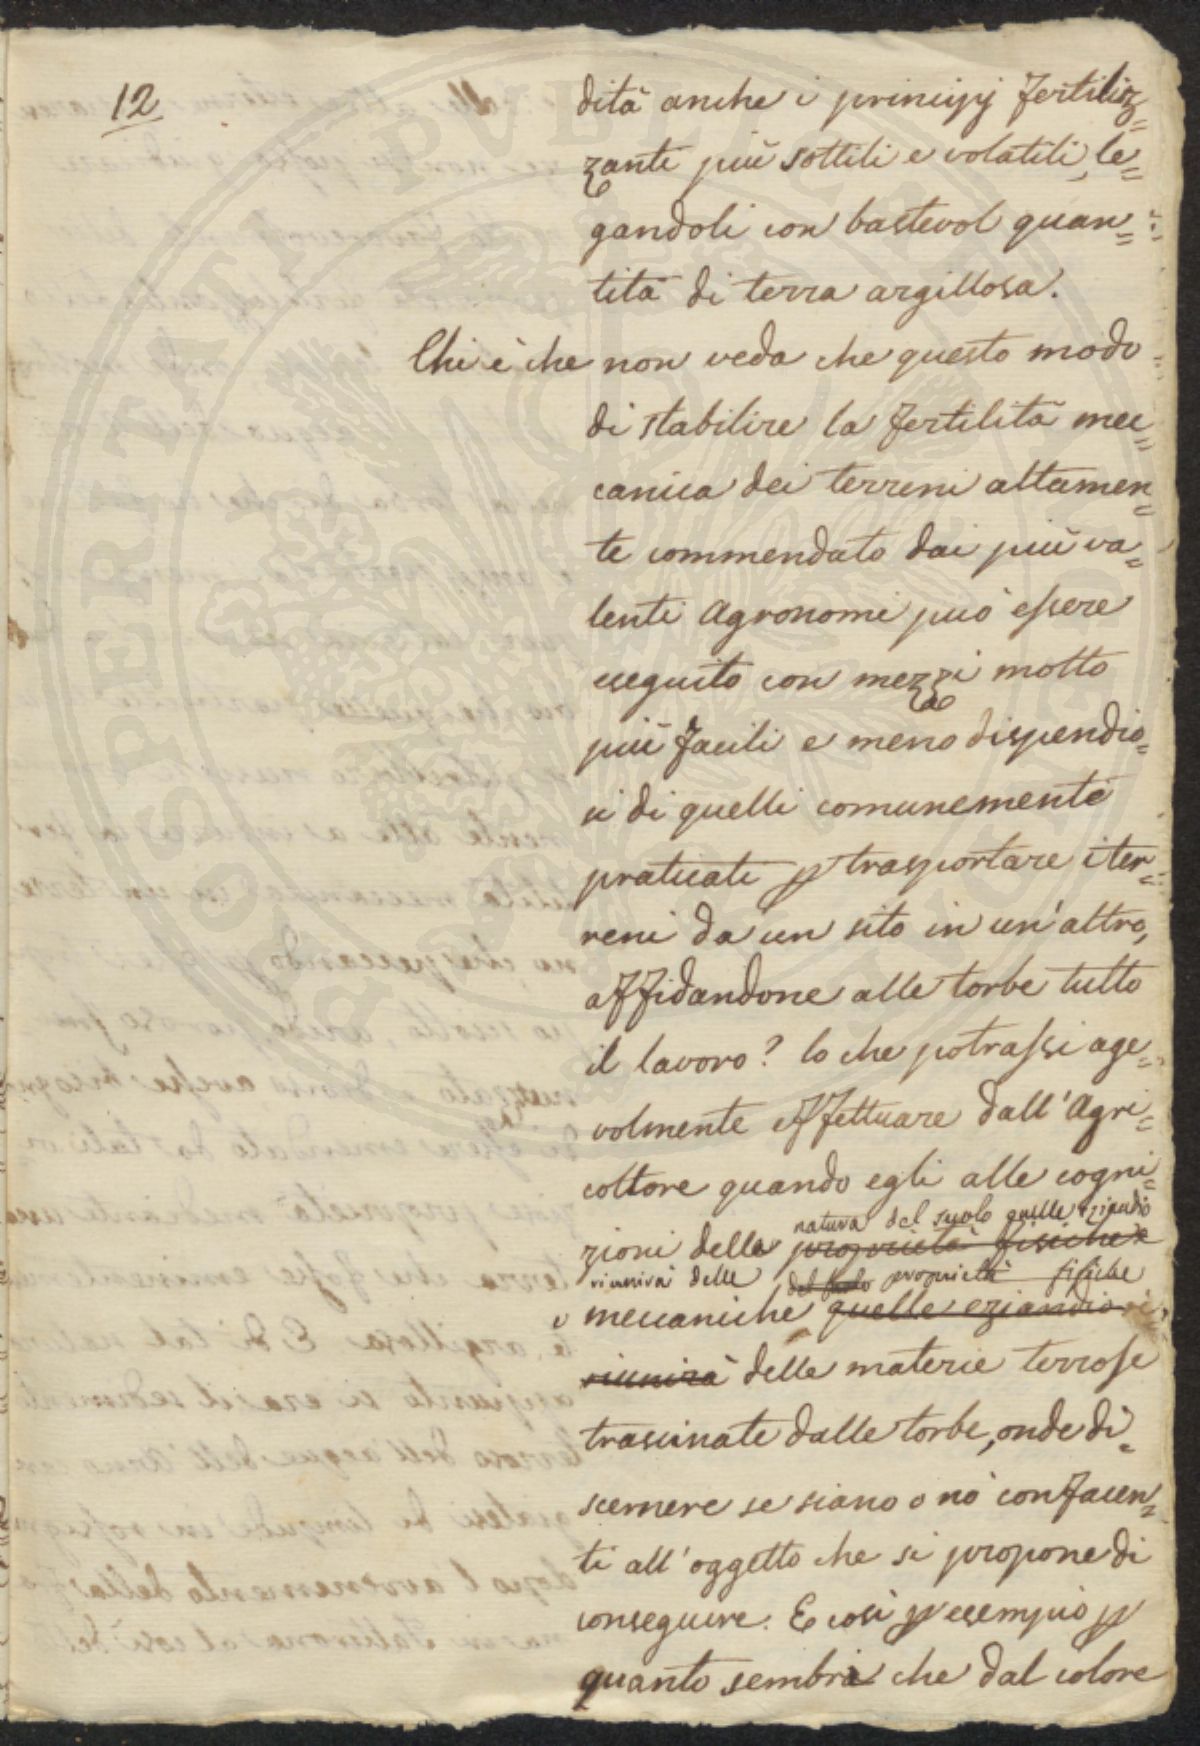 12
dità anche i principj fertiliz=
zanti più sottili e volatili, le=
gandoli con bastevol quan=
tità di terra argillosa.
Chi è che non veda che questo modo
di stabilire la fertilità mec=
canica dei terreni altamen=
te commendato dai più va=
lenti Agronomi può essere
eseguito con mezzi molto
più facili e meno dispendio=
si di quelli comunemente
praticati p trasportare i ter=
reni da un sito in un'altro,
affidandone alle torbe tutto
il lavoro? lo che potrassi age=
volmente effettuare dall'Agri=
coltore quando egli alle cogni=
natura del suolo quelle eziandio
zioni della proprietà fisiche
riunirà delle del suolo proprietà fisiche
e meccaniche quelle eziandio
riunirà delle materie terrose
trascinate dalle torbe, onde di=
scernere se siano o nò confacen=
ti all'oggetto che si propone di
conseguire. E così p esempio p
quanto sembri che dal colore
PROSPERITATI PVBLICAE AVGENDAE